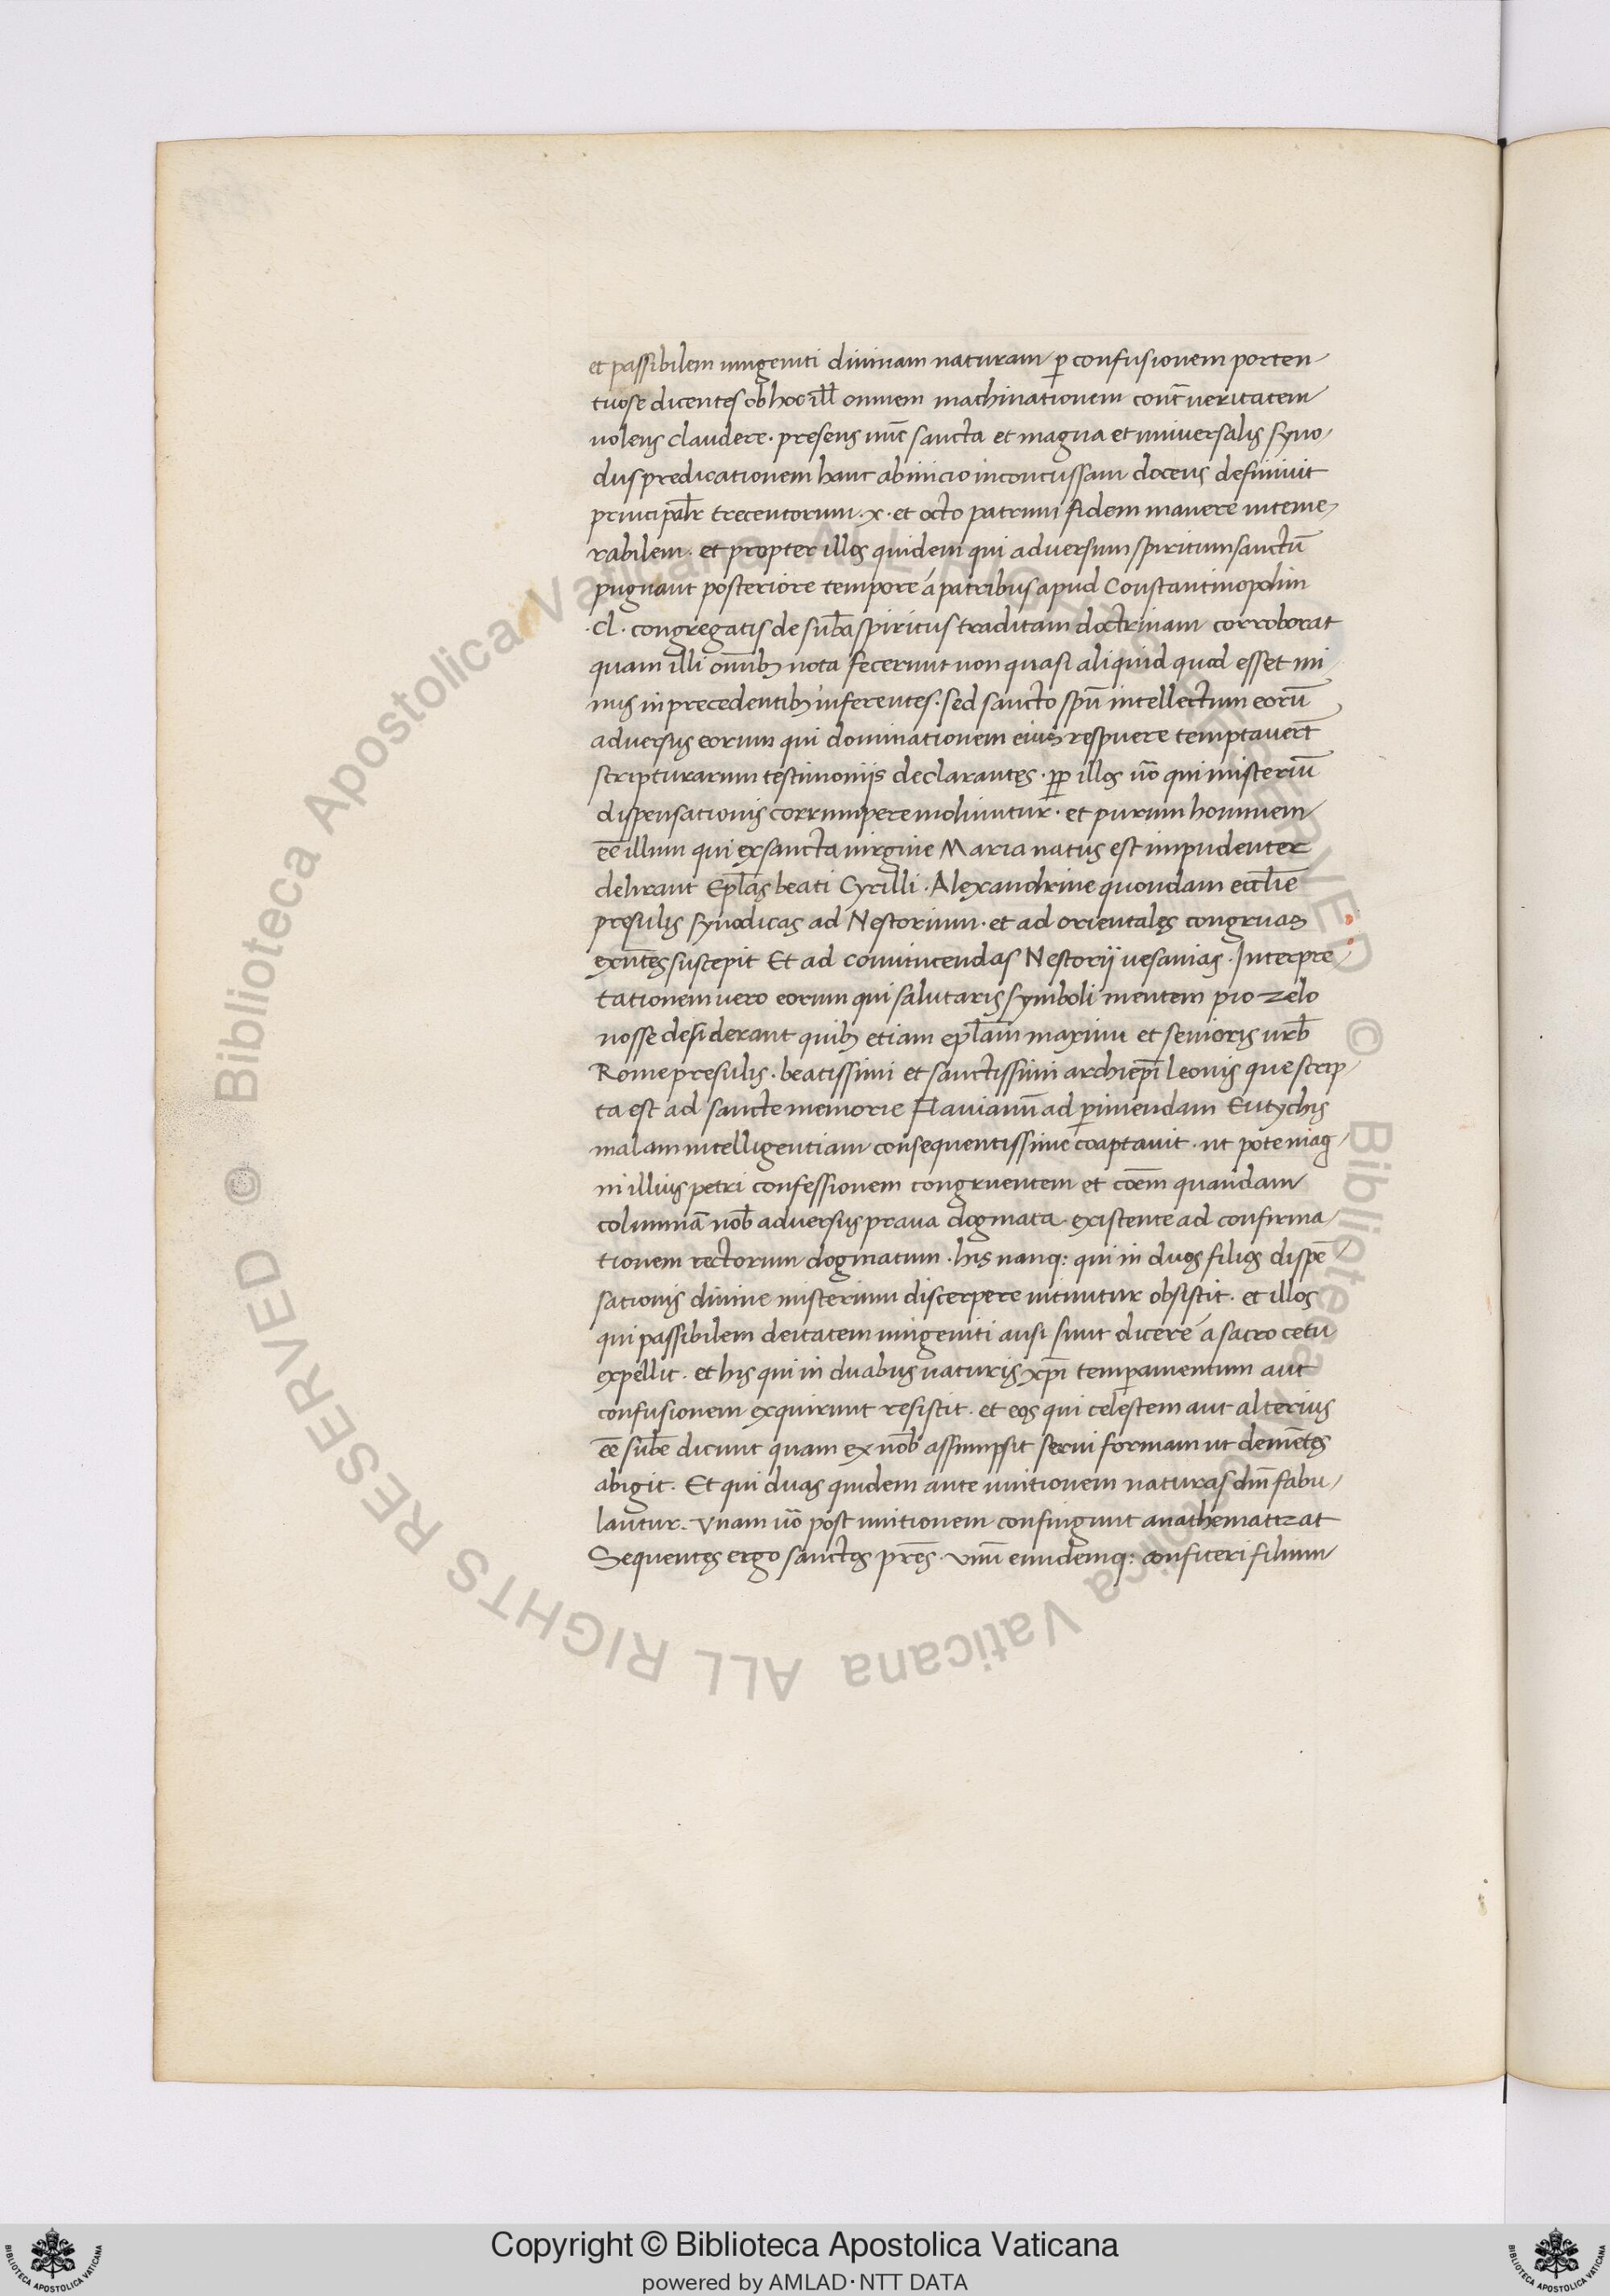 et passibilem unigeniti divinam naturam ꝑ confusionem porten
tuose dicentes ob hoc ill̄ omnem machinationem cont̄ veritatem
volens claudere · presens nūc sancta et magna et universalis syno
dus predicationem hanc ab inicio inconcussam docens definivit
principal̄r trecentorum · x · et octo patrum fidem manere inteme
rabilem · et propter illos quidem qui adversum spiritum sanctū
pugnant posteriore tempore á patribus apud Constantinopolim
· cl · congregatis de sub̄a spiritus traditam doctrinam corroborat
quam illi omībꝫ nota fecerunt non quasi aliquid quod esset mi
nus in precedentibꝫ inferentes · sed sancto spū intellectum eorū
adversus eorum qui dominationem eius respuere temptavert̄
scripturarum testimoniis declarantes · ꝓp illos ūo qui misteriū
dispensationis corrumpere moliuntur · et purum hominem
eē illum qui ex sancta virgine Maria natus est impudenter
delirant Epl̄as beati Cyrilli · Alexandrine quondam eccl̄ie
presulis synodicas ad Nestorium · et ad orientales congruas
exn̄tes suscepit Et ad convincendas Nestorii vesanias · Interpre
tationem vero eorum qui salutaris symboli mentem pio zelo
nosse desiderant quibꝫ etiam epl̄am maximi et senioris urb̄
Rome presulis · beatissimi et sanctissimi archiepī Leonis que scrip
ta est ad sancte memorie Flavianū ad ꝑimendam Eutychis
malam intelligentiam consequentissime coaptavit · ut pote mag
ni illius petri confessionem congruentem et cōem quandam
columnā nob̄ adversus prava dogmata existente ad confirma
tionem rectorum dogmatum · his nanq: qui in duos filios dispē
sationis divine misterium discerpere nituntur obsistit · et illos
qui passibilem deitatem unigeniti ausi sunt dicere á sacro cetu
expellit · et his qui in duabus naturis xp̄i temꝑamentum aut
confusionem exquirunt resistit · et eos qui celestem aut alterius
eē sub̄e dicunt quam ex nob̄ assumpsit servi formam ut demētes
abigit · Et qui duas quidem ante unitionem naturas dn̄i fabu
lantur · Unam ūo post unitionem confingunt anathematizat
Sequentes ergo sanctos pr̄es · Unū eundemq: confiteri filium
Copyright © Biblioteca Apostolica Vaticana
powered by AMLAD·NTT DATA
© Biblioteca Apostolica Vaticana ALL RIGHTS RESERVED
© Biblioteca Apostolica Vaticana ALL RIGHTS RESERVED
BIBLIOTECA APOSTOLICA VATICANA
BIBLIOTECA APOSTOLICA VATICANA